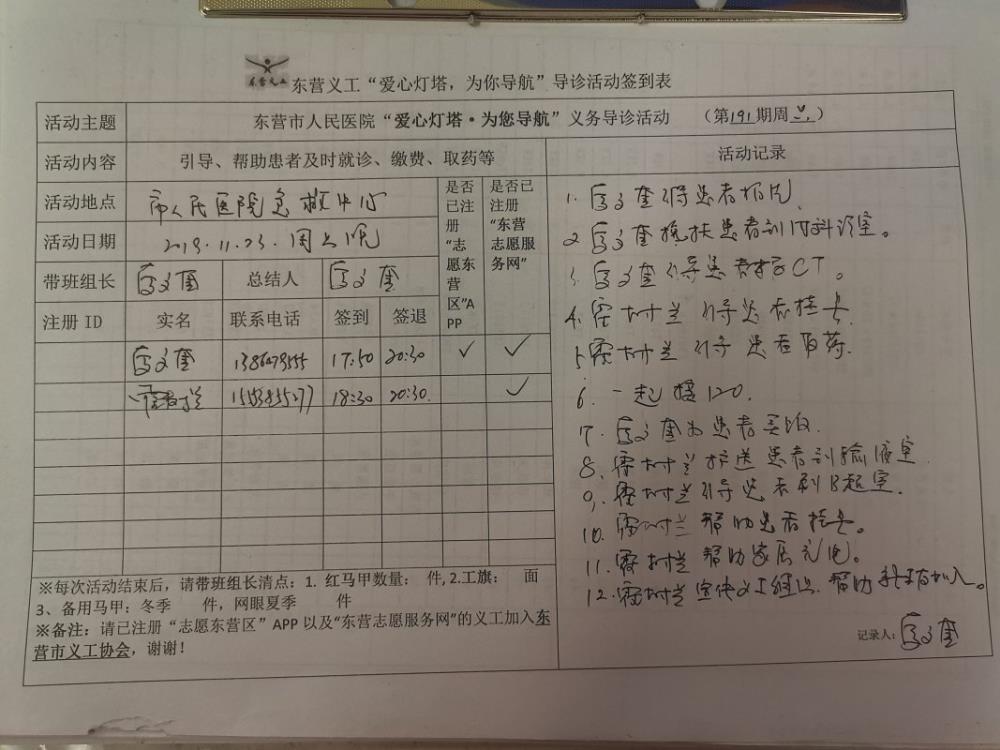 东营义工
东营义工“爱心灯塔，为你导航”导诊活动签到表
活动主题 东营市人民医院“爱心灯塔·为您导航”义务导诊活动 （第191期周 ）
活动内容 引导、帮助患者及时就诊、缴费、取药等 活动记录
活动地点 市人民医院急救中心
活动日期 2019.11.23.周六晚
是否已注册“志愿东营区”APP
是否已注册“东营志愿服务网”
带班组长 文奎 总结人 文奎
注册 ID 实名 联系电话 签到 签退
文奎 17:50 20:30 ✓ ✓
18:30 20:30. ✓
1. 文奎引导患者拍片.
2. 文奎搀扶患者到内科诊室。
3. 文奎引导患者 CT。
4. 树兰引导患者挂号.
5. 树兰引导患者取药.
6. 一起接120.
7. 文奎为患者买饭.
8. 树兰护送患者到输液室.
9. 树兰引导患者到B超室.
10. 树兰帮助患者挂号。
11. 树兰帮助家属充电。
12. 树兰宣传义工 帮助 加入。
※每次活动结束后，请带班组长清点：1. 红马甲数量： 件, 2.工旗： 面
3、备用马甲：冬季 件，网眼夏季 件
※备注：请已注册“志愿东营区”APP 以及“东营志愿服务网”的义工加入东
营市义工协会，谢谢！
记录人： 文奎